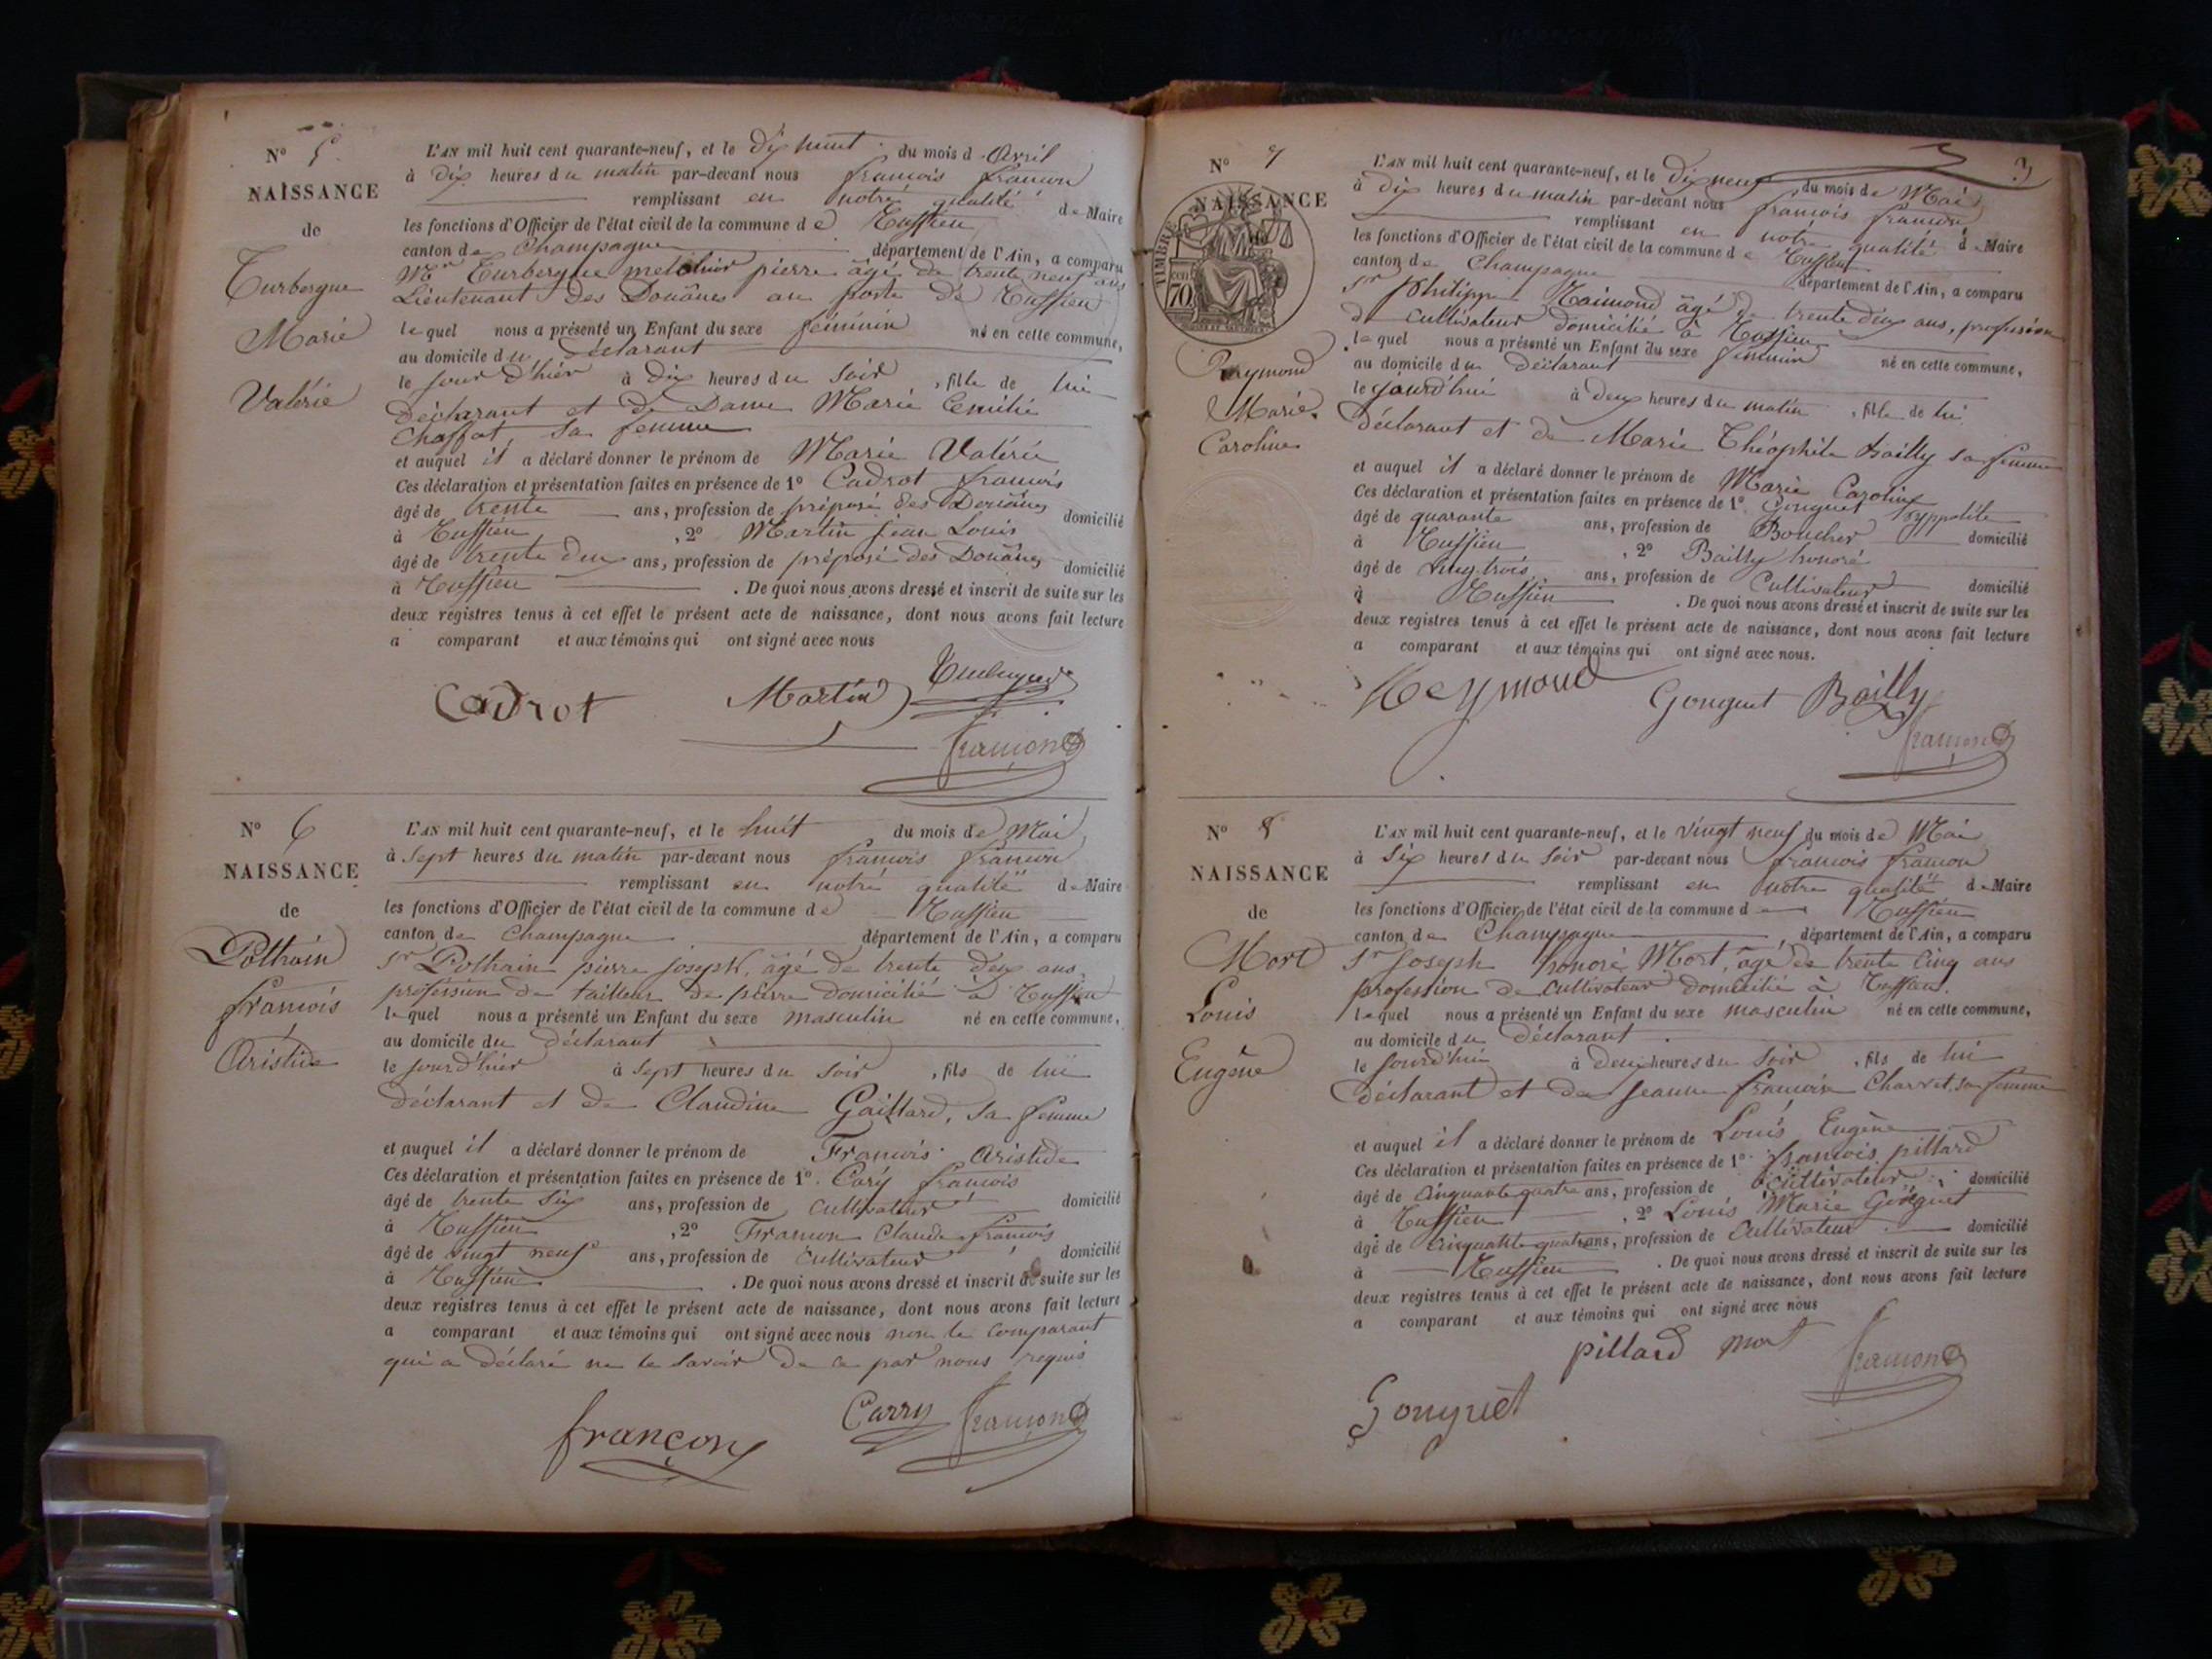 N° 5
NAISSANCE
de
Turbergue
Marie
Valérie
L'AN mil huit cent quarante-neuf, et le dix huit du mois d'Avril
à dix heures du matin par-devant nous françois françon
remplissant en notre qualité de Maire
les fonctions d'Officier de l'état civil de la commune de Culoz
canton de Champagne département de l'Ain, a comparu
Mr Turbergue melchior pierre âgé de trente neuf ans
Lieutenant des Douânes au poste de
lequel nous a présenté un Enfant du sexe féminin né en cette commune,
au domicile du déclarant
le jour d'hier à dix heures du soir, fille de lui
déclarant et de Dame Marie Emilie
Chaffat, sa femme
et auquel il a déclaré donner le prénom de Marie Valérie
Ces déclaration et présentation faites en présence de 1° Cadrot françois
âgé de trente ans, profession de préposé des Douânes domicilié
à , 2° Martin jean Louis
âgé de trente deux ans, profession de préposé des Douânes domicilié
à . De quoi nous avons dressé et inscrit de suite sur les
deux registres tenus à cet effet le présent acte de naissance, dont nous avons fait lecture
a comparant et aux témoins qui ont signé avec nous
Cadrot Martin Turbergue
françon
N° 6
NAISSANCE
de
Pothain
françois
Aristide
L'AN mil huit cent quarante-neuf, et le huit du mois de Mai
à sept heures du matin par-devant nous françois françon
remplissant en notre qualité de Maire
les fonctions d'Officier de l'état civil de la commune de
canton de Champagne département de l'Ain, a comparu
Sr Pothain pierre joseph, âgé de trente deux ans
profession de tailleur de pierre domicilié à
lequel nous a présenté un Enfant du sexe masculin né en cette commune,
au domicile du déclarant
le jour d'hier à sept heures du soir, fils de lui
déclarant et de Claudine Gaillard, sa femme
et auquel il a déclaré donner le prénom de François Aristide
Ces déclaration et présentation faites en présence de 1° Cary françois
âgé de trente six ans, profession de cultivateur domicilié
à , 2° Françon Claude françois
âgé de vingt neuf ans, profession de cultivateur domicilié
à . De quoi nous avons dressé et inscrit de suite sur les
deux registres tenus à cet effet le présent acte de naissance, dont nous avons fait lecture
a comparant et aux témoins qui ont signé avec nous non le comparant
qui a déclaré ne le savoir de ce par nous requis
françon Carry françon
3 3
N° 7
NAISSANCE
TIMBRE
70
Raymond
Marie
Caroline
L'AN mil huit cent quarante-neuf, et le dix neuf du mois de Mai
à dix heures du matin par-devant nous françois françon
remplissant en notre qualité de Maire
les fonctions d'Officier de l'état civil de la commune de
canton de Champagne département de l'Ain, a comparu
Sr philippe Raimond âgé de trente deux ans, profession
de cultivateur domicilié à
lequel nous a présenté un Enfant du sexe féminin né en cette commune,
au domicile du déclarant
le jourd'hui à deux heures du matin, fille de lui
déclarant et de Marie Théophile Bailly sa femme
et auquel il a déclaré donner le prénom de Marie Caroline
Ces déclaration et présentation faites en présence de 1° Gonguet hyppolite
âgé de quarante ans, profession de Boucher domicilié
à , 2° Bailly honoré
âgé de vingt trois ans, profession de Cultivateur domicilié
à . De quoi nous avons dressé et inscrit de suite sur les
deux registres tenus à cet effet le présent acte de naissance, dont nous avons fait lecture
a comparant et aux témoins qui ont signé avec nous.
Reymond Gonguet Bailly
françon
N° 8
NAISSANCE
de
Mort
Louis
Eugène
L'AN mil huit cent quarante-neuf, et le vingt neuf du mois de Mai
à six heures du soir par-devant nous françois françon
remplissant en notre qualité de Maire
les fonctions d'Officier de l'état civil de la commune de
canton de Champagne département de l'Ain, a comparu
Sr Joseph honoré Mort, âgé de trente cinq ans
profession de cultivateur domicilié à
lequel nous a présenté un Enfant du sexe masculin né en cette commune,
au domicile du déclarant
le jourd'hui à deux heures du soir, fils de lui
déclarant et de jeanne françoise Charvet, sa femme
et auquel il a déclaré donner le prénom de Louis Eugène
Ces déclaration et présentation faites en présence de 1° françois pillard
âgé de cinquante quatre ans, profession de cultivateur domicilié
à , 2° Louis Marie Gonguet
âgé de cinquante quatre ans, profession de cultivateur domicilié
à . De quoi nous avons dressé et inscrit de suite sur les
deux registres tenus à cet effet le présent acte de naissance, dont nous avons fait lecture
a comparant et aux témoins qui ont signé avec nous
pillard mort françon
Gonguet